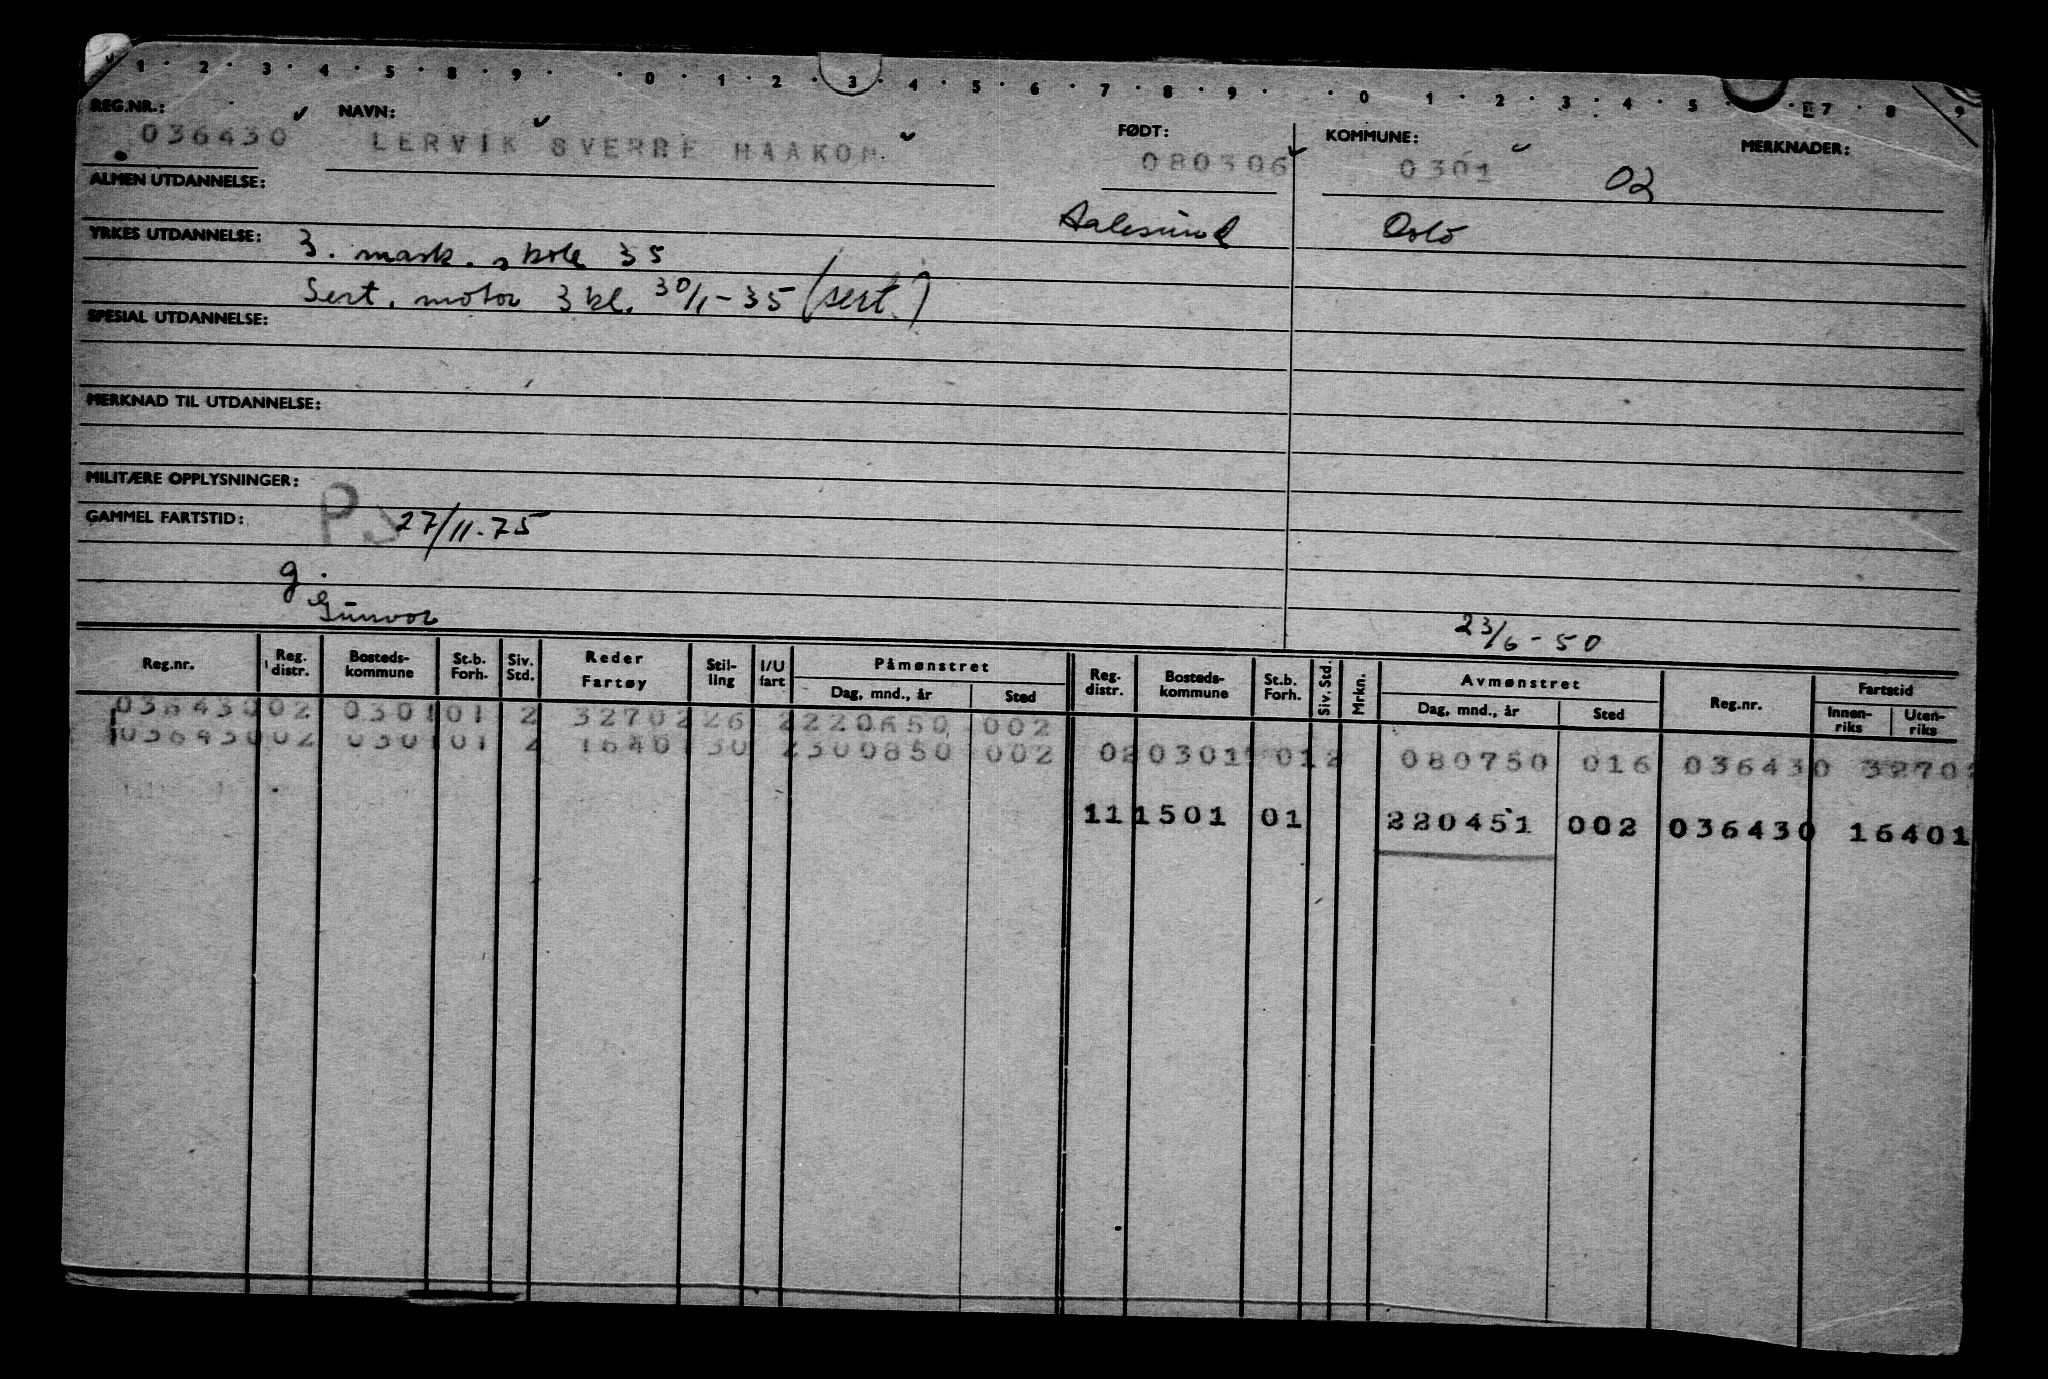 1 · 2 · 3 · 4 · 5 · 8 · 9 · · 0 · 1 · 2 · 3 · 4 · 5 · 6 · 7 · 8 · 9 · · 0 · 1 · 2 · 3 · 4 · 5 · · 7 · 8 · 9
REG.NR.: NAVN: FØDT: KOMMUNE: MERKNADER:
036430 LERVIK SVERRE HAAKON 080306 0301 02
ALMEN UTDANNELSE:
Aalesund Oslo
YRKES UTDANNELSE: 3. mask. skole 35
Sert. motor 3 kl. 30/1-35 (sert.)
SPESIAL UTDANNELSE:
MERKNAD TIL UTDANNELSE:
MILITÆRE OPPLYSNINGER:
GAMMEL FARTSTID: PJ 27/11.75
g.
Gunvor 23/6-50
Reg.nr. Reg. distr. Bosteds-kommune St.b. Forh. Siv. Std. Reder Fartøy Stil-ling I/U fart Påmønstret Dag, mnd., år Sted Reg. distr. Bosteds-kommune St.b. Forh. Siv. Std. Mrkn. Avmønstret Dag, mnd., år Sted Reg.nr. Fartstid Innen-riks Uten-riks
036430 02 0301 01 2 32702 26 2 220650 002
036430 02 0301 01 2 16401 30 2 300850 002 02 0301 01 2 080750 016 036430 32702
11 1501 01 220451 002 036430 16401